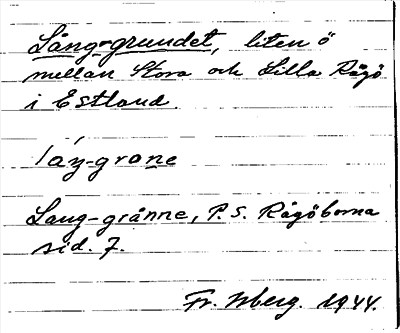 Lång-grundet, liten ö
mellan Stora och Lilla Rågö
i Estland.
Lang-grånne, P. S. Rågöborna
sid. 7.
Fr. 1944.